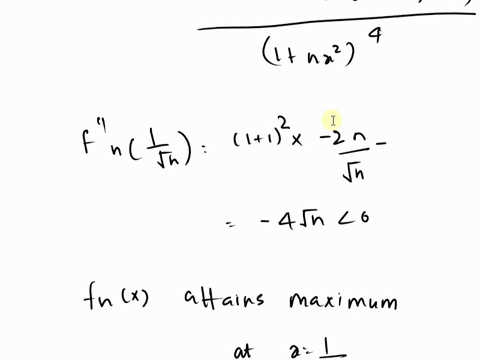 (1+nx²)⁴
f''n(1/√n) : (1+1)² x -2n/√n -
= -4√n <0
fn(x) attains maximum
at x= 1